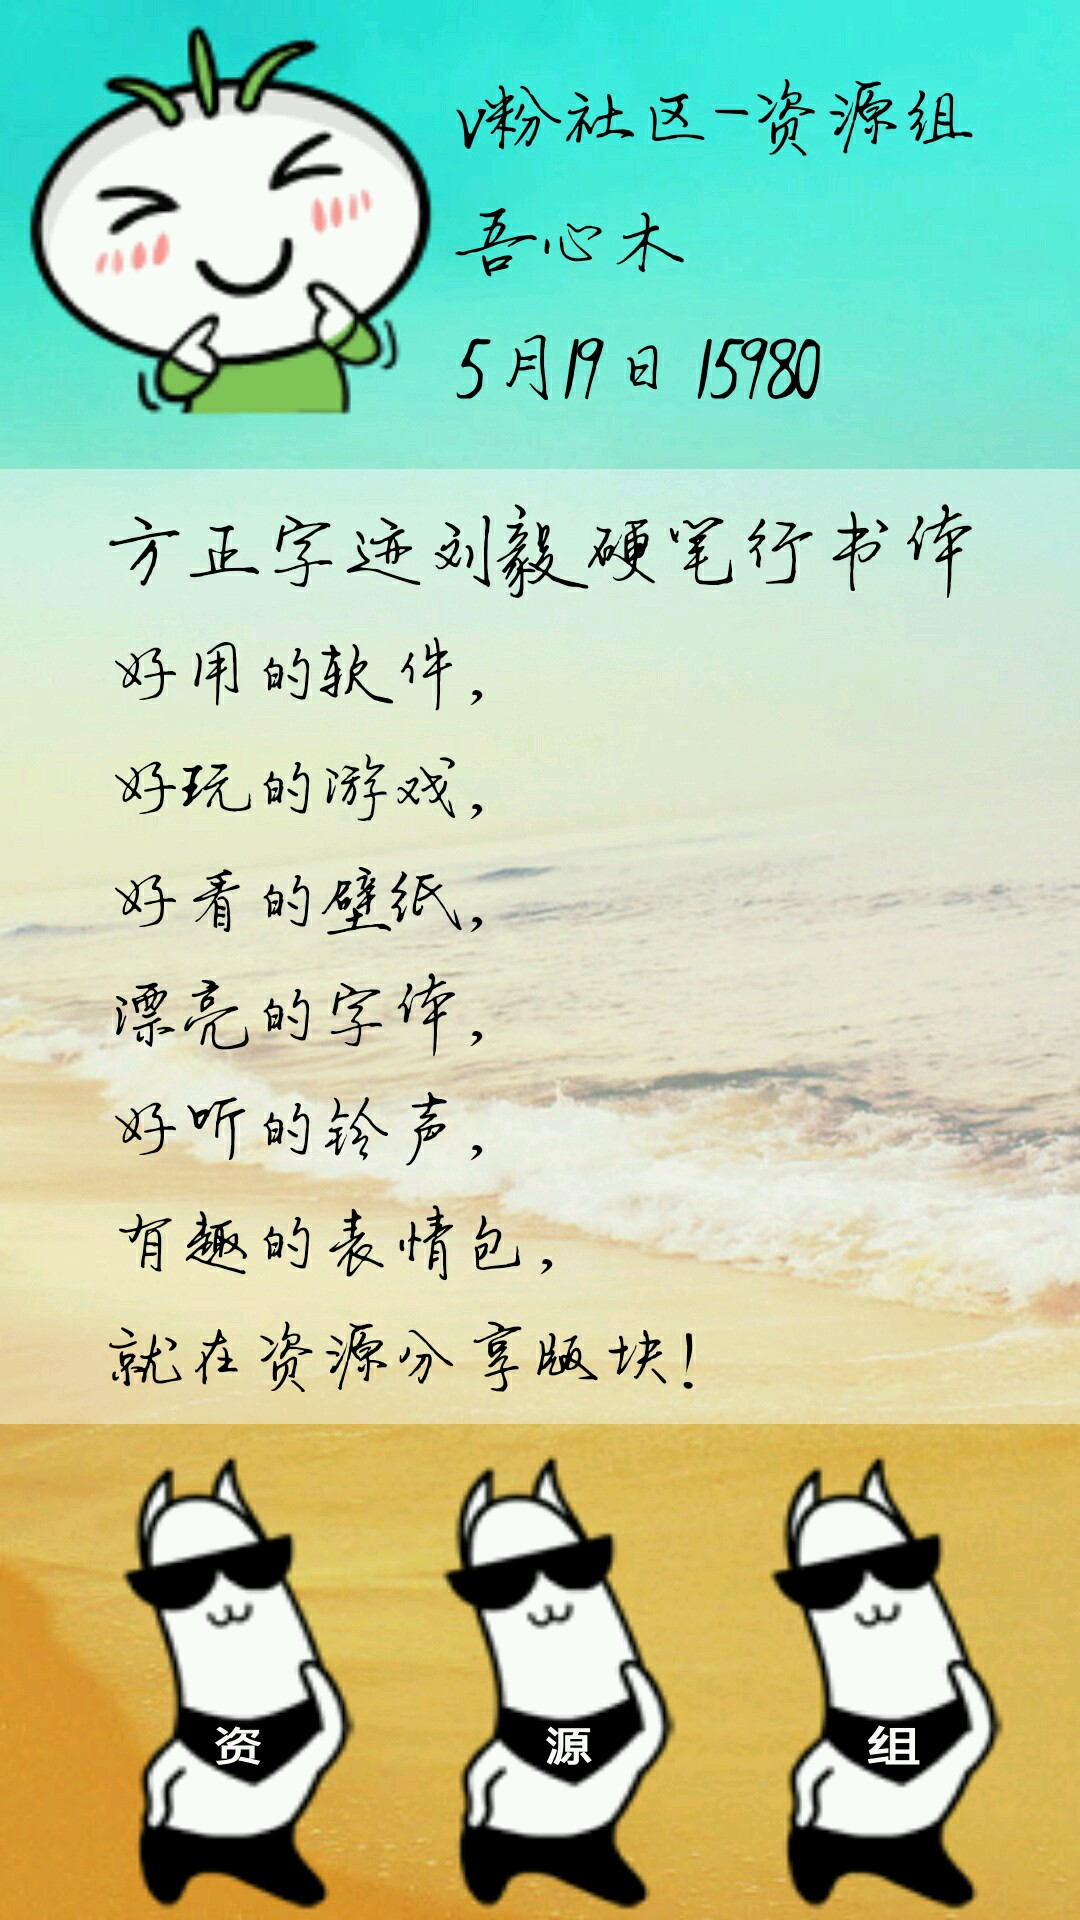 v粉社区-资源组
吾心木
5月19日 15980
方正字迹刘毅硬笔行书体
好用的软件，
好玩的游戏，
好看的壁纸，
漂亮的字体，
好听的铃声，
有趣的表情包，
就在资源分享版块！
资 源 组